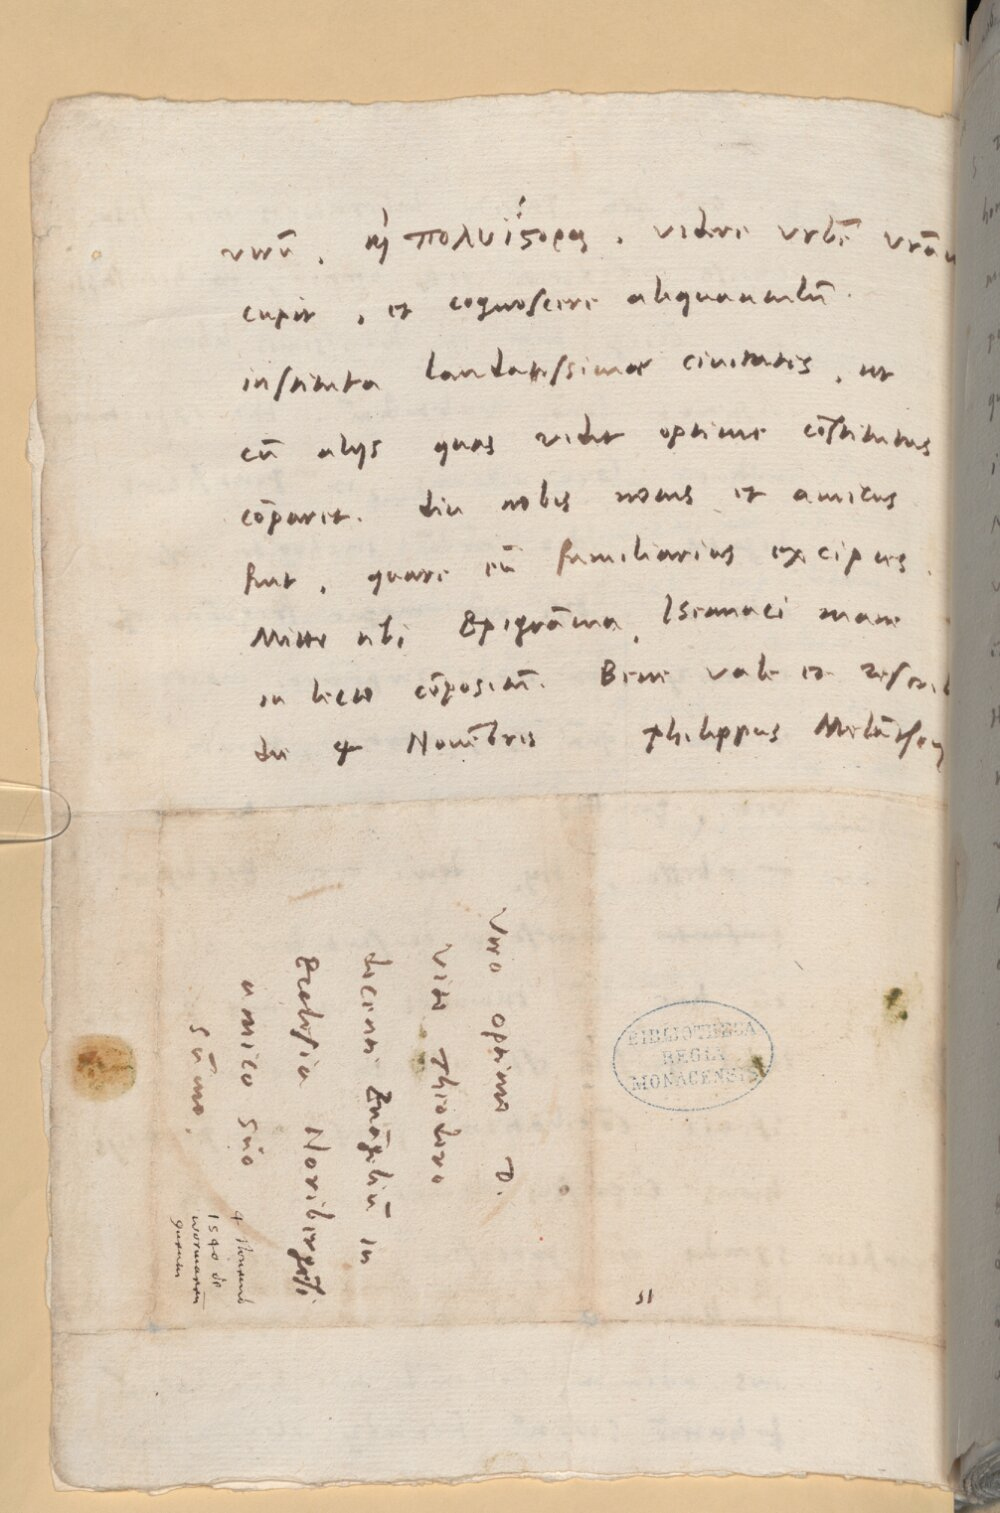 virū, καὶ πολυΐστορα, videre vrbē vrām
cupit, et cognoscere aliquantulū
instituta laudatissimae ciuitatis, ut
cū alijs quas vidit optime cōstitutas
cōparet. diu nobis notus et amicus
fuit, quare eū familiarius excipies.
Mitto tibi Epigrāma, Isennaci mane
in lecto cōpositū. Bene vale et rescrib
die 4 Nouēbris Philippus Melāthon
Viro optimo D.
Vito Theodoro
docenti Euāgeliū in
Ecclesia Noribergēsi
amico suo
sūmo.
4 Nouemb
1540 de
wormatiē
BIBLIOTHECA
REGIA
MONACENSIS
51